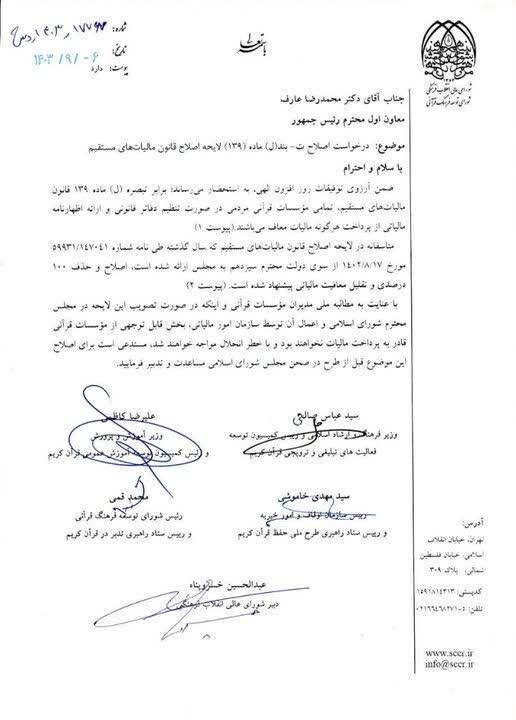 باسمه تعالی
شماره: ۱۷۷۶۷/۱۴۰۳/دش
تاریخ: ۱۴۰۳/۹/۰۶
پیوست: دارد
شورای عالی انقلاب فرهنگی
شورای توسعه فرهنگ قرآنی
جناب آقای دکتر محمدرضا عارف
معاون اول محترم رئیس جمهور
موضوع: درخواست اصلاح ت- بند(ل) ماده (۱۳۹) لایحه اصلاح قانون مالیات‌های مستقیم
با سلام و احترام
ضمن آرزوی توفیقات روز افزون الهی، به استحضار می‌رساند: برابر تبصره (ل) ماده ۱۳۹ قانون
مالیات‌های مستقیم، تمامی مؤسسات قرآنی مردمی در صورت تنظیم دفاتر قانونی و ارائه اظهارنامه
مالیاتی از پرداخت هرگونه مالیات معاف می‌باشند.(پیوست ۱)
متاسفانه در لایحه اصلاح قانون مالیات‌های مستقیم که سال گذشته طی نامه شماره ۵۹۹۳۱/۱۴۷۰۴۱
مورخ ۱۴۰۲/۸/۱۷ از سوی دولت محترم سیزدهم به مجلس ارائه شده است، اصلاح و حذف ۱۰۰
درصدی و تقلیل معافیت مالیاتی پیشنهاد شده است. (پیوست ۲)
با عنایت به مطالبه ملی مدیران مؤسسات قرآنی و اینکه در صورت تصویب این لایحه در مجلس
محترم شورای اسلامی و اعمال آن توسط سازمان امور مالیاتی، بخش قابل توجهی از مؤسسات قرآنی
قادر به پرداخت مالیات نخواهند بود و با خطر انحلال مواجه خواهند شد، مستدعی است برای اصلاح
این موضوع قبل از طرح در صحن مجلس شورای اسلامی مساعدت و تدبیر فرمایید.
سید عباس صالحی
وزیر فرهنگ و ارشاد اسلامی و رییس کمیسیون توسعه
فعالیت های تبلیغی و ترویجی قرآن کریم
علیرضا کاظمی
وزیر آموزش و پرورش
و رئیس کمیسیون توسعه آموزش عمومی قرآن کریم
سید مهدی خاموشی
رییس سازمان اوقاف و امور خیریه
و رییس ستاد راهبری طرح ملی حفظ قرآن کریم
محمد قمی
رئیس شورای توسعه فرهنگ قرآنی
و رییس ستاد راهبری تدبر در قرآن کریم
عبدالحسین خسروپناه
دبیر شورای عالی انقلاب فرهنگی
آدرس:
تهران، خیابان انقلاب
اسلامی، خیابان فلسطین
شمالی، پلاک ۳۰۹
کدپستی: ۱۵۹۲۸۱۴۳۱۳
تلفن: ۵-۰۲۱۶۶۴۶۸۲۷۱
www.sccr.ir
info@sccr.ir